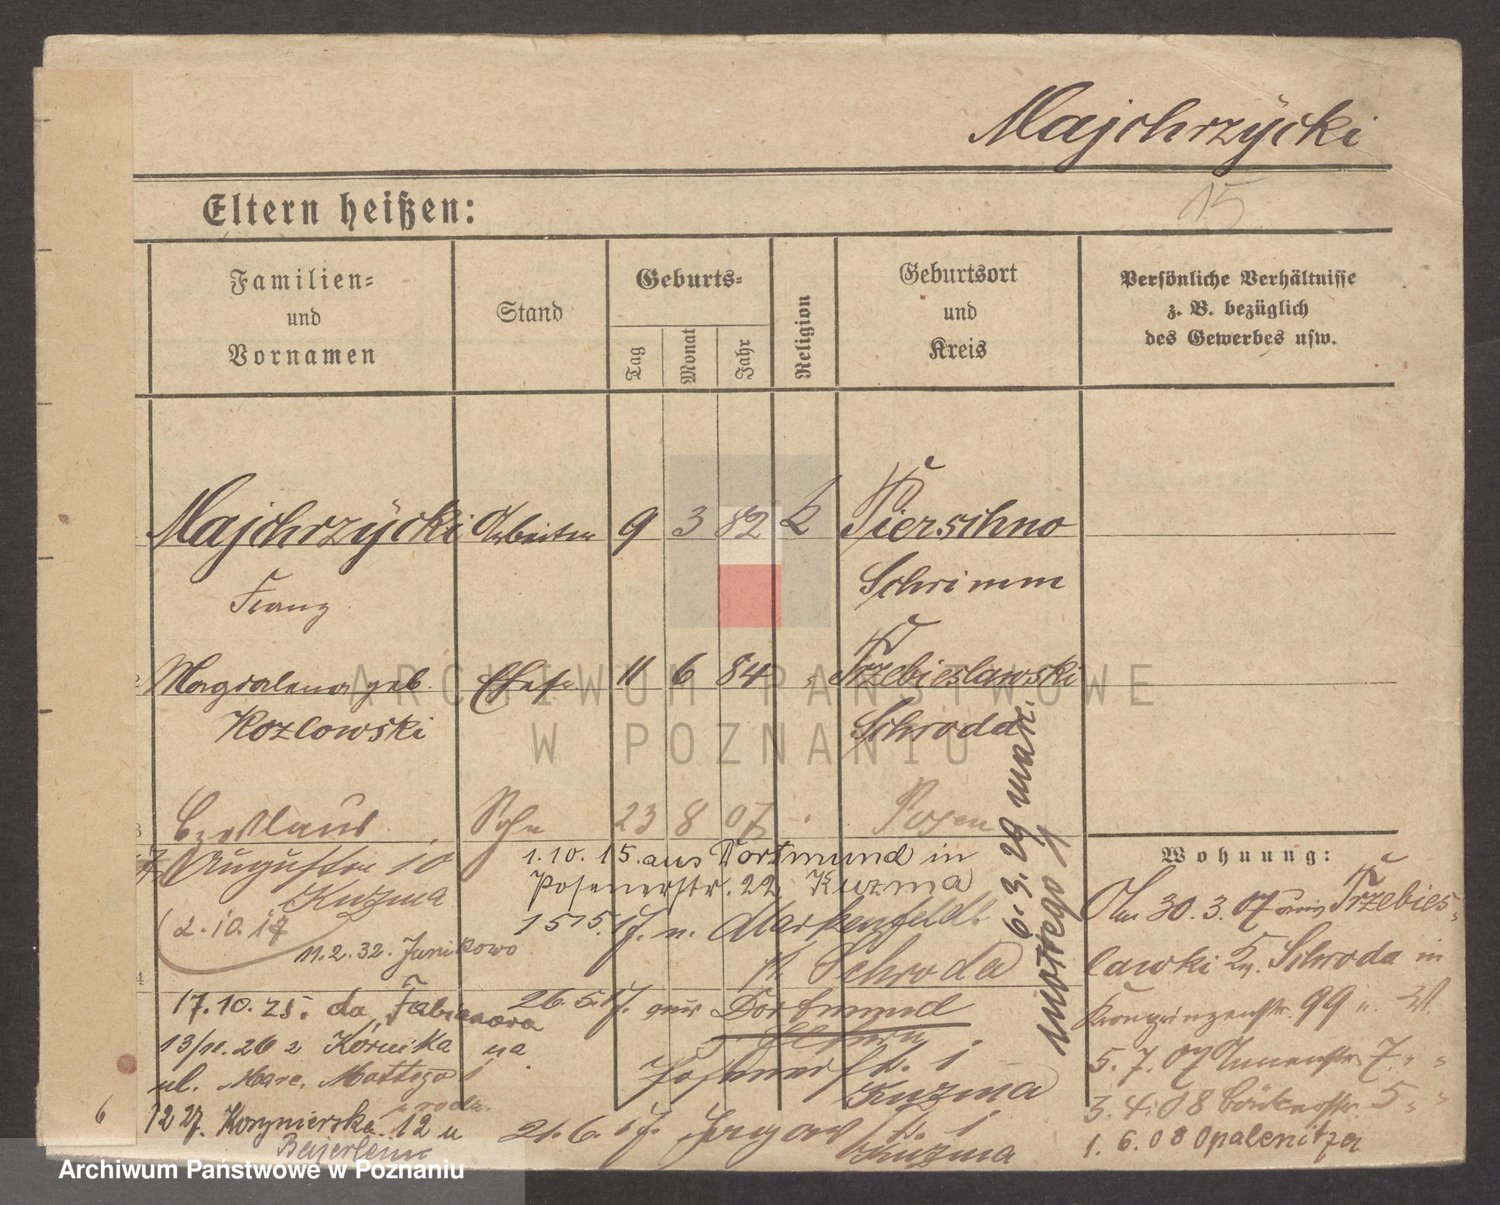 Majchrzÿcki
15
Eltern heißen:
Familien=
und
Vornamen
Stand
Geburts=
Tag
Monat
Jahr
Religion
Geburtsort
und
Kreis
Persönliche Verhältnisse
z. B. bezüglich
des Gewerbes usw.
Majchrzÿcki Arbeiter 9 3 82 k Pierschno
Franz Schrimm
Magdalena geb. Ehefr. 11 6 84 Trzebieslawski
Kozlowski Schroda
Czeslaus Sohn 23 8 07 Posen
Augustin 10
Kuzma
2.10.17
11.2.32. Junikowo
1.10.15. aus Dortmund in
Posenerstr. 22, Kuzma
1515. n. Markenfeld
Schroda
26.5.17. aus Dortmund
Kuzma
21.6.17.
Kuzma
17.10.25. da Fabianowa
13/11.26 z Kórnika na
ul. Marc. Mottego
12 27. Koszynierska 12 u
Bajerlein
6.3.29 Marc.
Mottego
Wohnung:
30.3.07 aus Trzebies-
lawki Kr. Schroda in
Kronprinzenstr. 99
5.7.07 7.
3.4.08 5
1.6.08 Opalenitza
6
ARCHIWUM PAŃSTWOWE
W POZNANIU
Archiwum Państwowe w Poznaniu